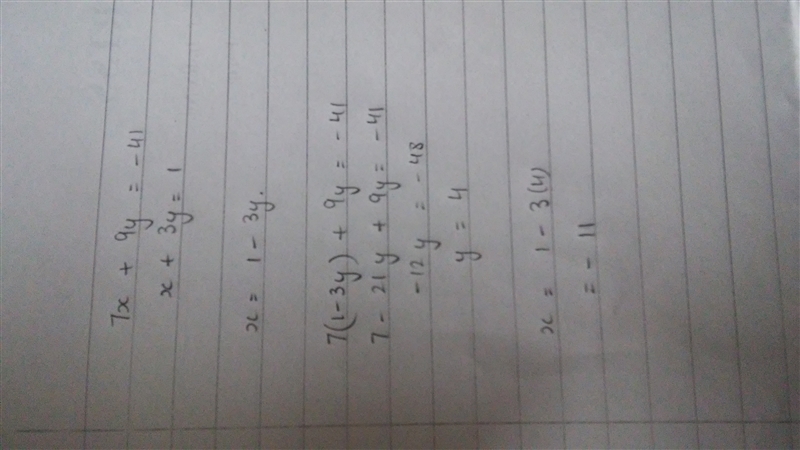 7x + 9y = -41
x + 3y = 1
x = 1 - 3y.
7(1-3y) + 9y = -41
7 - 21y + 9y = -41
-12y = -48
y = 4
x = 1 - 3(4)
= - 11